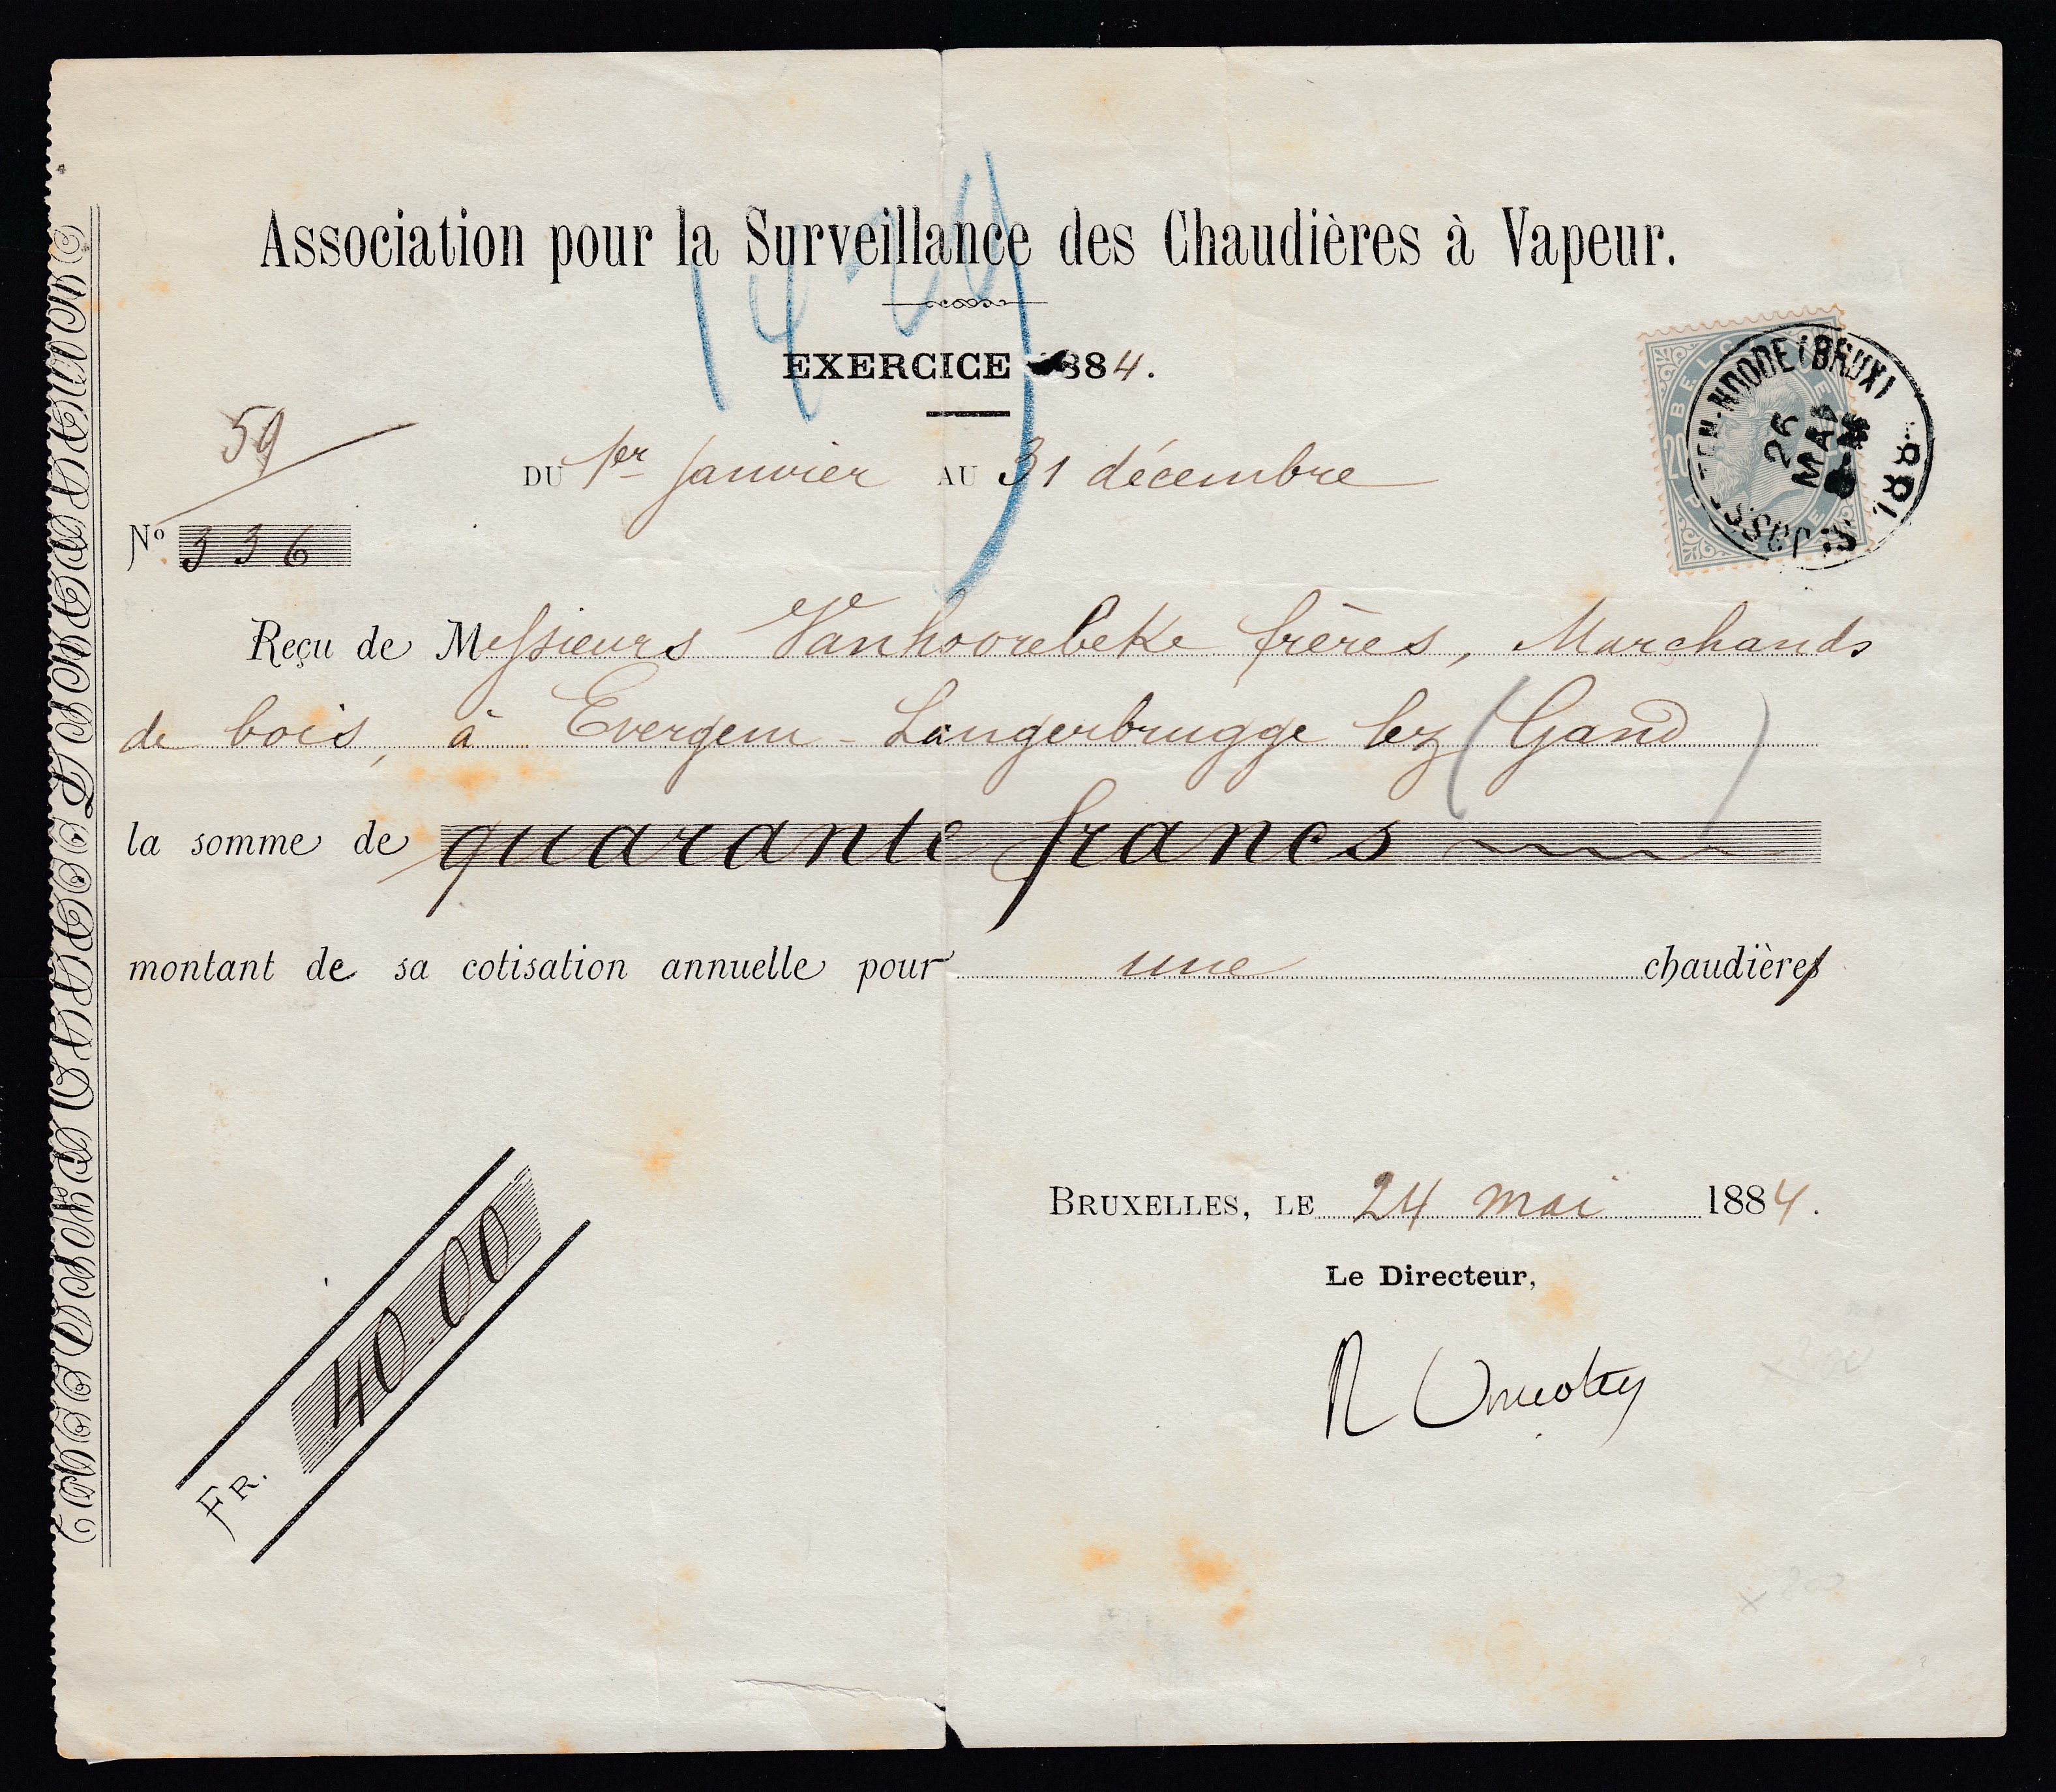 Association pour la Surveillance des Chaudières à Vapeur.
EXERCICE 1884.
59
DU 1er Janvier AU 31 décembre
No. 336
BELGIQUE
20
ST JOSSE-TEN-NOODE (BRUX)
26 MAI
1884
Reçu de Messieurs Vanhoorebeke frères, Marchands
de bois, à Evergem-Langerbrugge lez (Gand)
la somme de quarante francs
montant de sa cotisation annuelle pour une chaudière
BRUXELLES, LE 24 mai 1884.
Le Directeur,
FR. 40.00